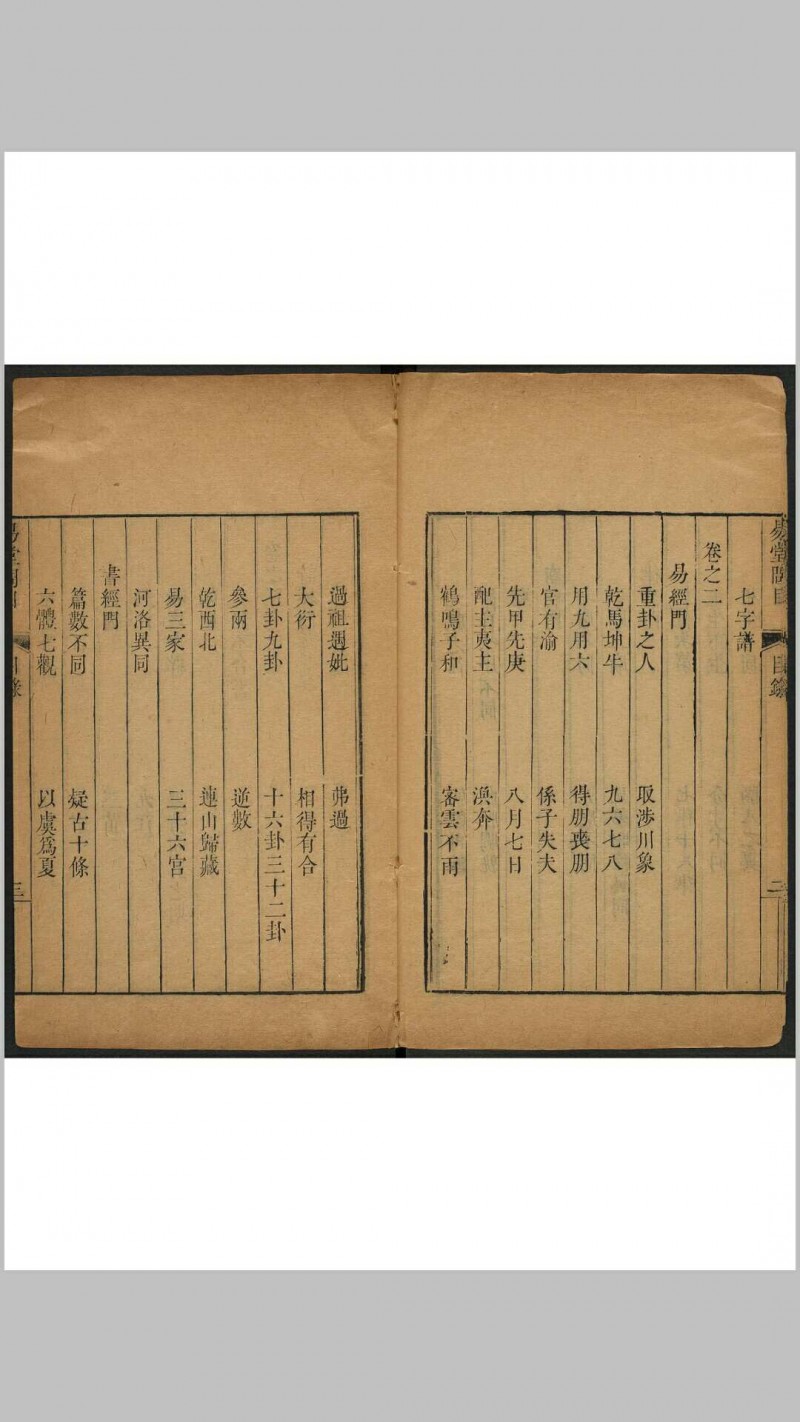 易堂問目
目錄
二
七字譜
卷之二
易經門
重卦之人 取渉川象
乾馬坤牛 九六七八
用九用六 得朋喪朋
官有渝 係子失夫
先甲先庚 八月七日
配主夷主 渙奔
鶴鳴子和 密雲不雨
過祖遇妣 弗過
大衍 相得有合
七卦九卦 十六卦三十二卦
參兩 逆數
乾西北 連山歸藏
易三家 三十六宮
河洛異同
書經門
篇數不同 疑古十條
六體七觀 以虞爲夏
易堂問目
目錄
三